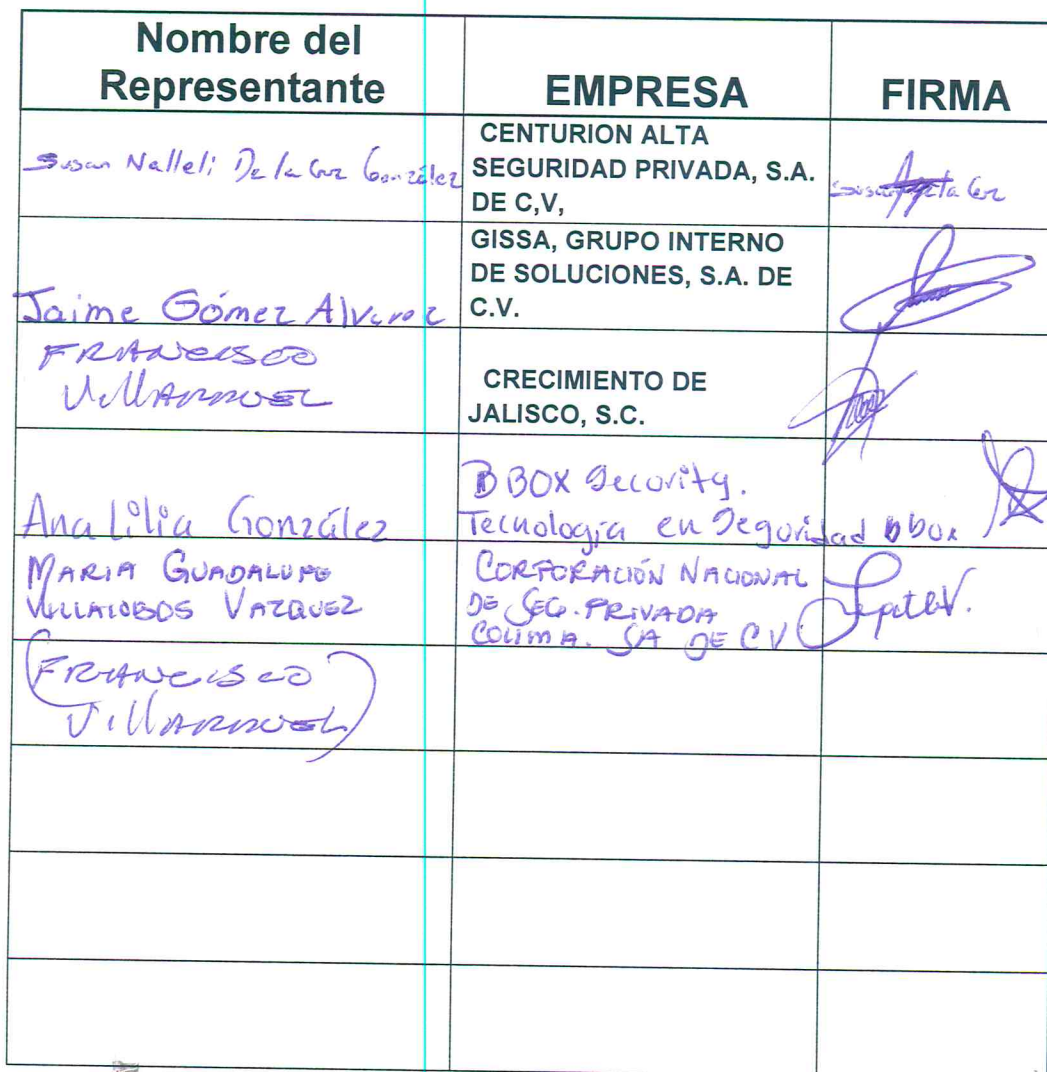 Nombre del
Representante
EMPRESA
FIRMA
Susan Nalleli De la Cruz González
CENTURION ALTA
SEGURIDAD PRIVADA, S.A.
DE C,V,
Jaime Gómez Alvarez
GISSA, GRUPO INTERNO
DE SOLUCIONES, S.A. DE
C.V.
FRANCISCO
VILLARRUEL
CRECIMIENTO DE
JALISCO, S.C.
Ana Lilia González
BBOX Security.
Tecnología en Seguridad bbox
MARIA GUADALUPE
VILLALOBOS VAZQUEZ
CORPORACIÓN NACIONAL
DE SEG. PRIVADA
COLIMA. SA DE CV
(FRANCISCO
VILLARRUEL)